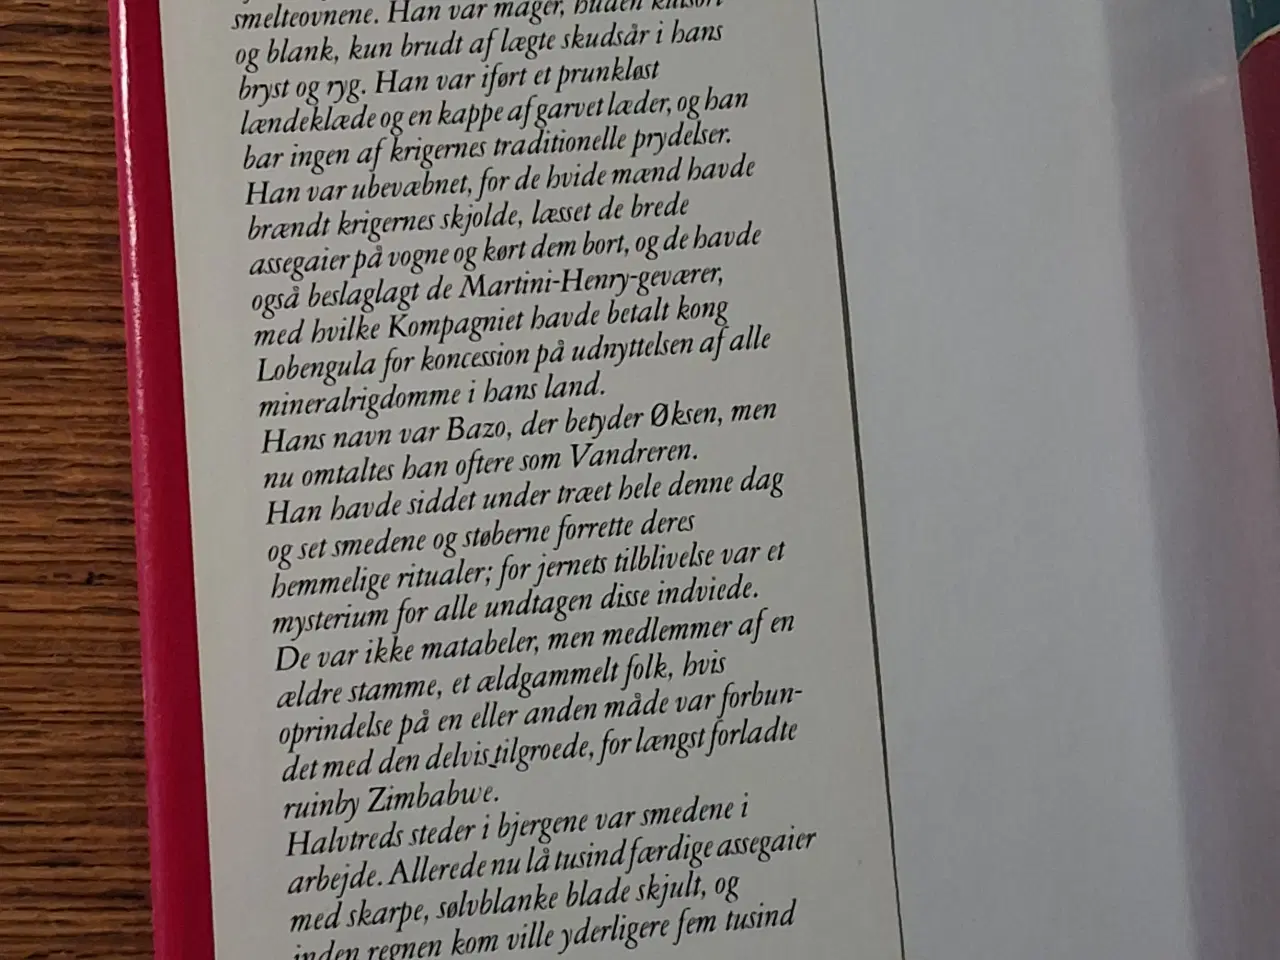 smelteovnene. Han var mager, huden kulsort
og blank, kun brudt af lægte skudsår i hans
bryst og ryg. Han var iført et prunkløst
lændeklæde og en kappe af garvet læder, og han
bar ingen af krigernes traditionelle prydelser.
Han var ubevæbnet, for de hvide mænd havde
brændt krigernes skjolde, læsset de brede
assegaier på vogne og kørt dem bort, og de havde
også beslaglagt de Martini-Henry-geværer,
med hvilke Kompagniet havde betalt kong
Lobengula for koncession på udnyttelsen af alle
mineralrigdomme i hans land.
Hans navn var Bazo, der betyder Øksen, men
nu omtaltes han oftere som Vandreren.
Han havde siddet under træet hele denne dag
og set smedene og støberne forrette deres
hemmelige ritualer; for jernets tilblivelse var et
mysterium for alle undtagen disse indviede.
De var ikke matabeler, men medlemmer af en
ældre stamme, et ældgammelt folk, hvis
oprindelse på en eller anden måde var forbun-
det med den delvis tilgroede, for længst forladte
ruinby Zimbabwe.
Halvtreds steder i bjergene var smedene i
arbejde. Allerede nu lå tusind færdige assegaier
med skarpe, sølvblanke blade skjult, og
inden regnen kom ville yderligere fem tusind